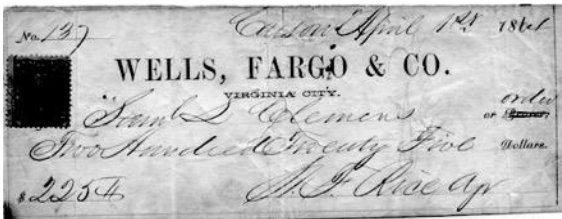 No. 137 Carson April 1st 1864
WELLS, FARGO & CO.
VIRGINIA CITY.
Saml L Clemens or order
Two Hundred Twenty Five Dollars.
$225 C. F. Rice Agt